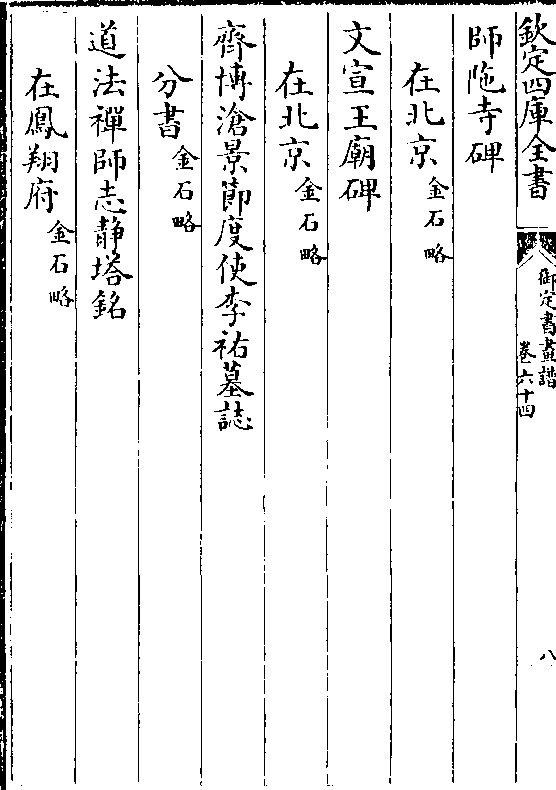 欽定四庫全書
御定書畫譜
卷六十四
八
師陁寺碑
在北京金石略
文宣王廟碑
在北京金石略
齊博滄景節度使李祐墓誌
分書金石略
道法禪師志靜塔銘
在鳳翔府金石略